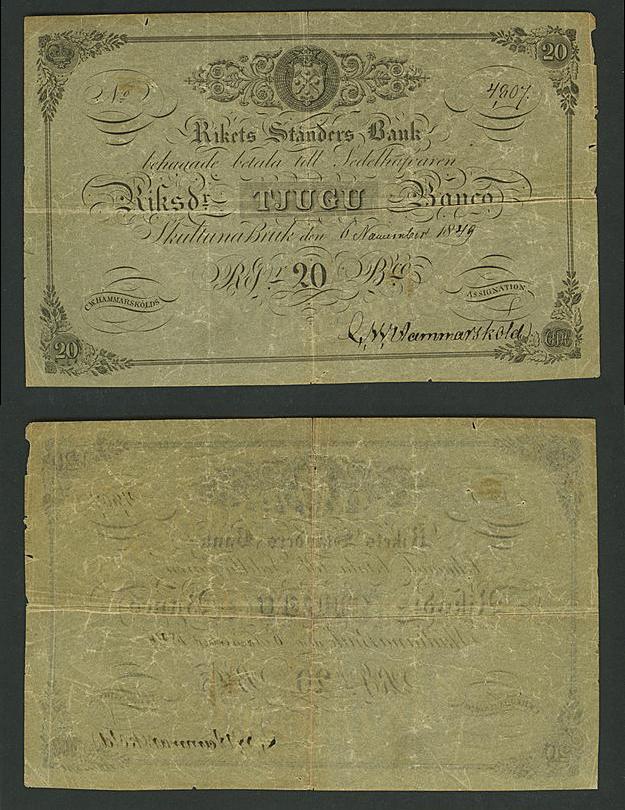 20
No 4807.
Rikets Ständers Bank
behagade betala till Vedelhafvaren
Riksdr TJUGU Banco
Skultuna Bruk den 6 November 1849
RGr 20 Bco
C.W. HAMMARSKÖLDS
ASSIGNATION
C, W, Hammarsköld
20